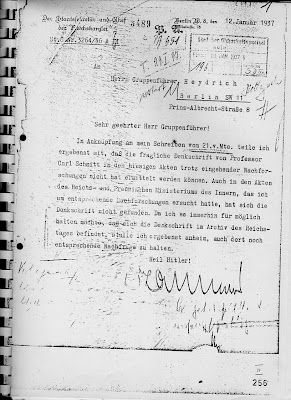 Der Staatssekretär und Chef
der Reichskanzlei
Berlin W 8, den 12. Januar 1937
3489
St.S. Nr. 3264/36
An
Herrn Gruppenführer Heydrich
Berlin SW 11
Prinz-Albrecht-Straße 8
Sehr geehrter Herr Gruppenführer!
In Anknüpfung an mein Schreiben vom 21.v.Mts. teile ich
ergebenst mit, daß die fragliche Denkschrift von Professor
Carl Schmitt in den hiesigen Akten trotz eingehender Nachfor-
schungen nicht hat ermittelt werden können. Auch in den Akten
des Reichs- und Preußischen Ministeriums des Innern, das ich
um entsprechende Nachforschungen ersucht hatte, hat sich die
Denkschrift nicht gefunden. Da ich es immerhin für möglich
halten möchte, daß sich die Denkschrift im Archiv des Reichs-
tages befindet, stelle ich ergebenst anheim, auch dort noch
entsprechende Nachfrage zu halten.
Heil Hitler!
256